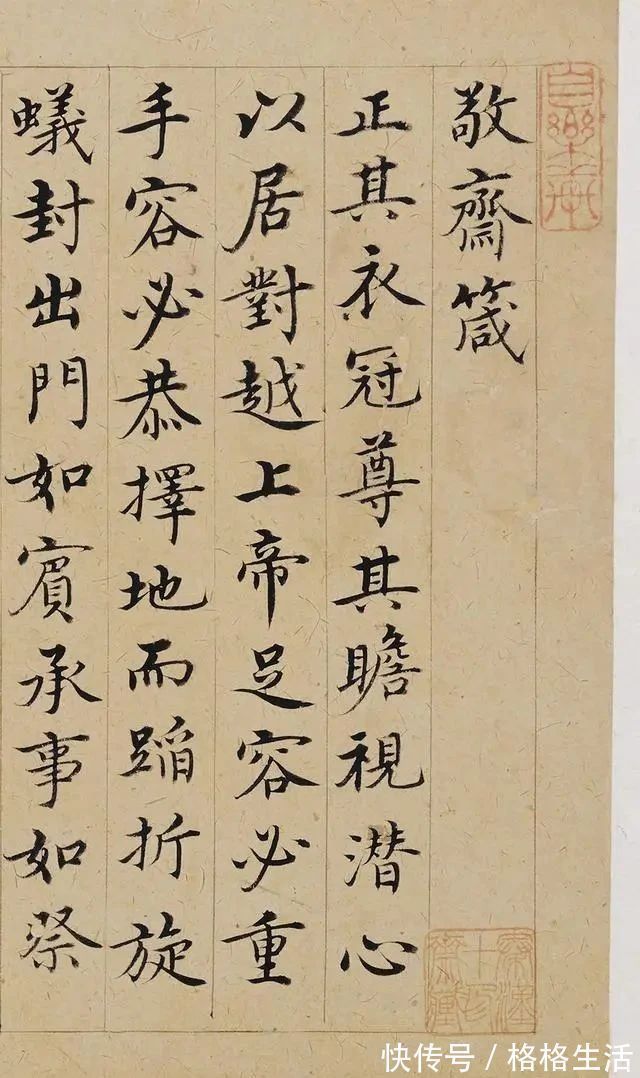 敬齋箴
正其衣冠尊其瞻視潛心
以居對越上帝足容必重
手容必恭擇地而蹈折旋
蟻封出門如賓承事如祭
快传号/格格生活